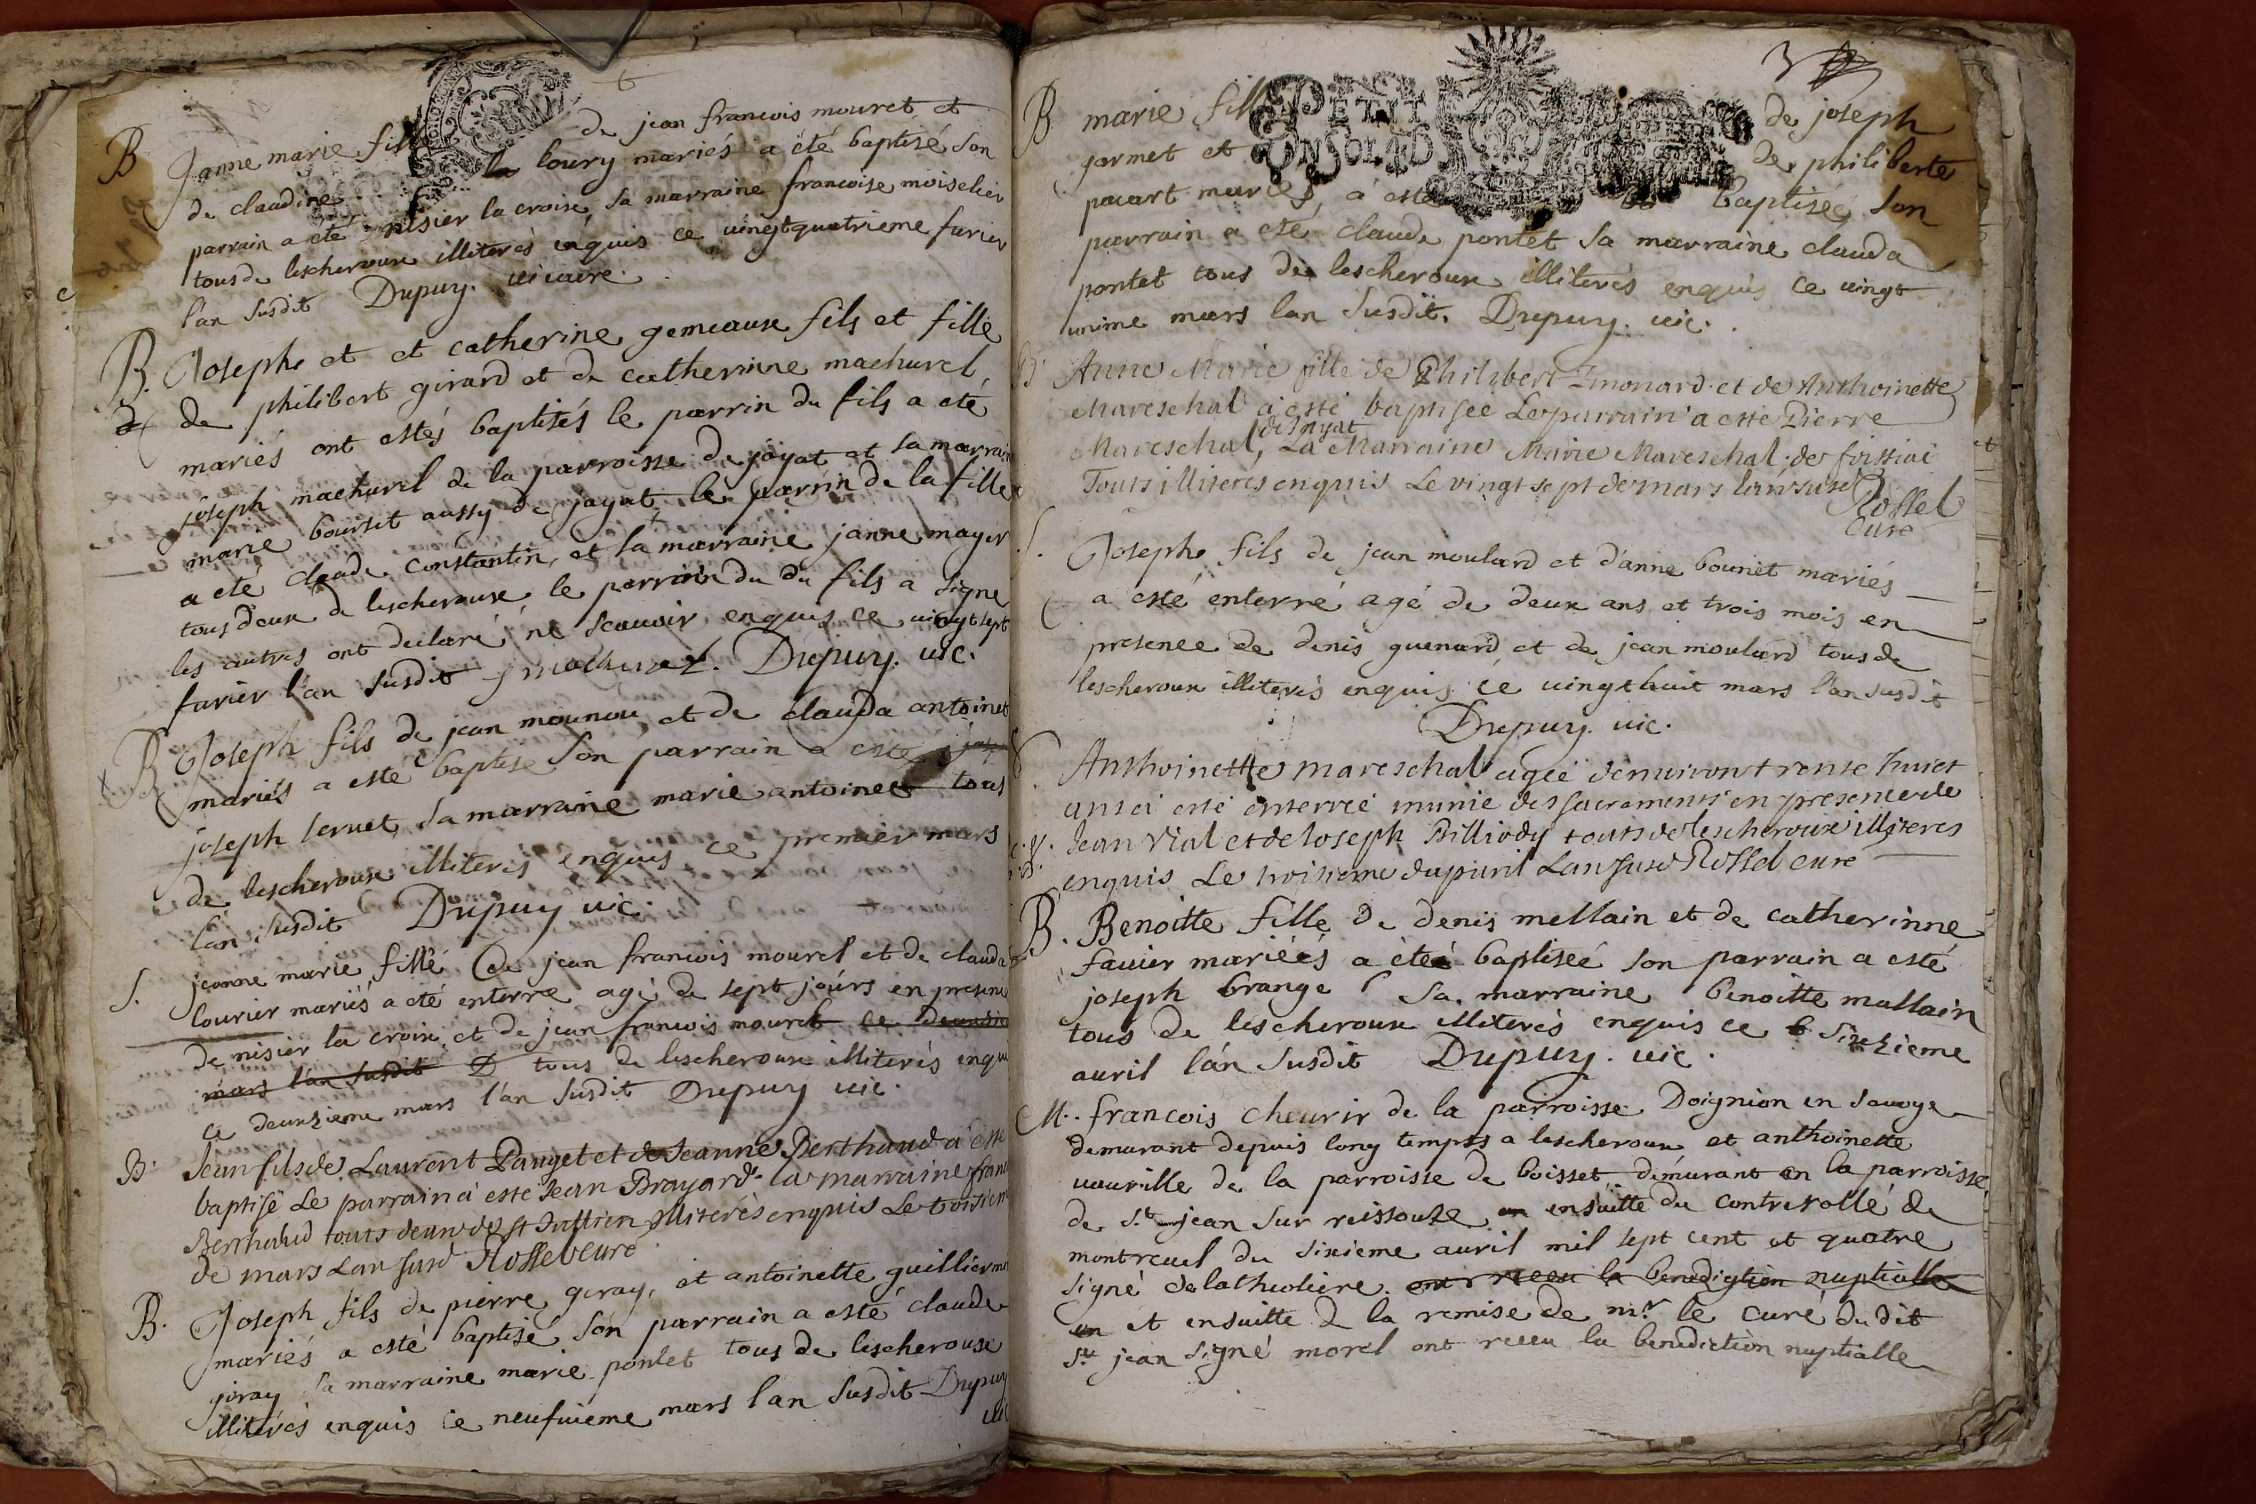 B Janne marie fill de jean francois mouret et
de claudine la loury mariés a été baptisé son
parrain a été nisier la croix, sa marraine francoise moiselier
tous de lescheroux illiterés enquis ce vingtquatrieme fevrier
l'an susdit Dupuy. vicaire.
B. Joseph et et catherine gemeaux fils et fille
de philibert girard et de catherinne machurel
mariés ont estés baptisés le parrin du fils a eté
joseph machurel de la parroisse de jayat et la marrain
marie boursit aussy de jayat, le parrin de la fille
a eté claude constantin, et la marraine janne mayer
tous deux de lescheroux le parrain du du fils a signe
les autres ont declaré ne scavoir enquis ce vingt sept
fevrier l'an susdit j machurel. Dupuy. vic.
B Joseph fils de jean mounou, et de clauda antoinet
mariés a esté baptisé son parrain a esté
joseph servet, sa marraine marie antoinet tous
de lescheroux illiterés enquis ce premier mars
l'an susdit Dupuy vic.
S. jeanne marie fille de jean francois mourel et de clauda
lourier mariés a eté enterre agé de sept jours en presence
de nisier la croix, et de jean francois mouret ce deuxsie
mars l'an susdit D tous de lescheroux illiterés enqui
ce deuxzieme mars l'an susdit Dupuy vic.
B. Jean fils de Laurent Pauget et de Jeanne Berthaud a esté
baptisé Le parrain a esté Jean Brayard la marraine fran
Berthaud touts deux de St Jullien illiterés enquis Le troisiem
de mars L'an susd Rossel curé
B. Joseph fils de pierre giray, et antoinette guillermi
mariés a esté baptisé son parrain a esté claude
giray sa marraine marie pontet tous de lescheroux
illiterés enquis ce neufvieme mars l'an susdit Dupuy
vic
3
B marie fill PETIT de joseph
gormet et ONSOLD de philiberte
pacart mariés, a esté baptisée son
parrain a eté claude pontet sa marraine clauda
pontet tous de lescheroux illiterés enquis ce vingt
unime mars l'an susdit. Dupuy. vic.
B Anne Marie fille de Philibert et de Anthoinette
Mareschal a esté baptisée Le parrain a esté Pierre
Mareschal, de jayat La Marraine Marie Mareschal de foissiat
Touts illiteres enquis Le vingt sept de mars l'an susd
Rossel
Curé
S. Joseph fils de jean moulard et d'anne bounet mariés
a esté enterré agé de deux ans et trois mois en
presence de denis guenard et de jean moulard tous de
lescheroux illiterés enquis ce vingthuit mars l'an susdit
Dupuy. vic.
Anthoinette mareschal agée d'environt trente huict
ans a esté enterrée munie des sacraments en presence de
Jean Vial et de Joseph Billiody touts de lescheroux illiteres
enquis Le troisieme d'apuril L'an susd Rossel curé
B. Benoitte fille de denis mellain et de catherinne
favier mariéés a étéé baptiseé son parrain a esté
joseph brange sa marraine benoitte mallain
tous de lescheroux illiterés enquis ce 6 sixzieme
avril l'an susdit Dupuy. vic.
M. francois cheurir de la parroisse Doignion en Savoye
demurant depuis long temps a lescheroux et anthoinette
vauville de la parroisse de boisset demurant en la parroisse
de St jean sur reissouze en ensuitte du controlle de
montreuel du sixieme avril mil sept cent et quatre
signé delatheoliere. ont receu la benediction nuptialle
en et ensuitte d la remise de mr le curé dudit
St jean signé morel ont receu la benediction nuptialle